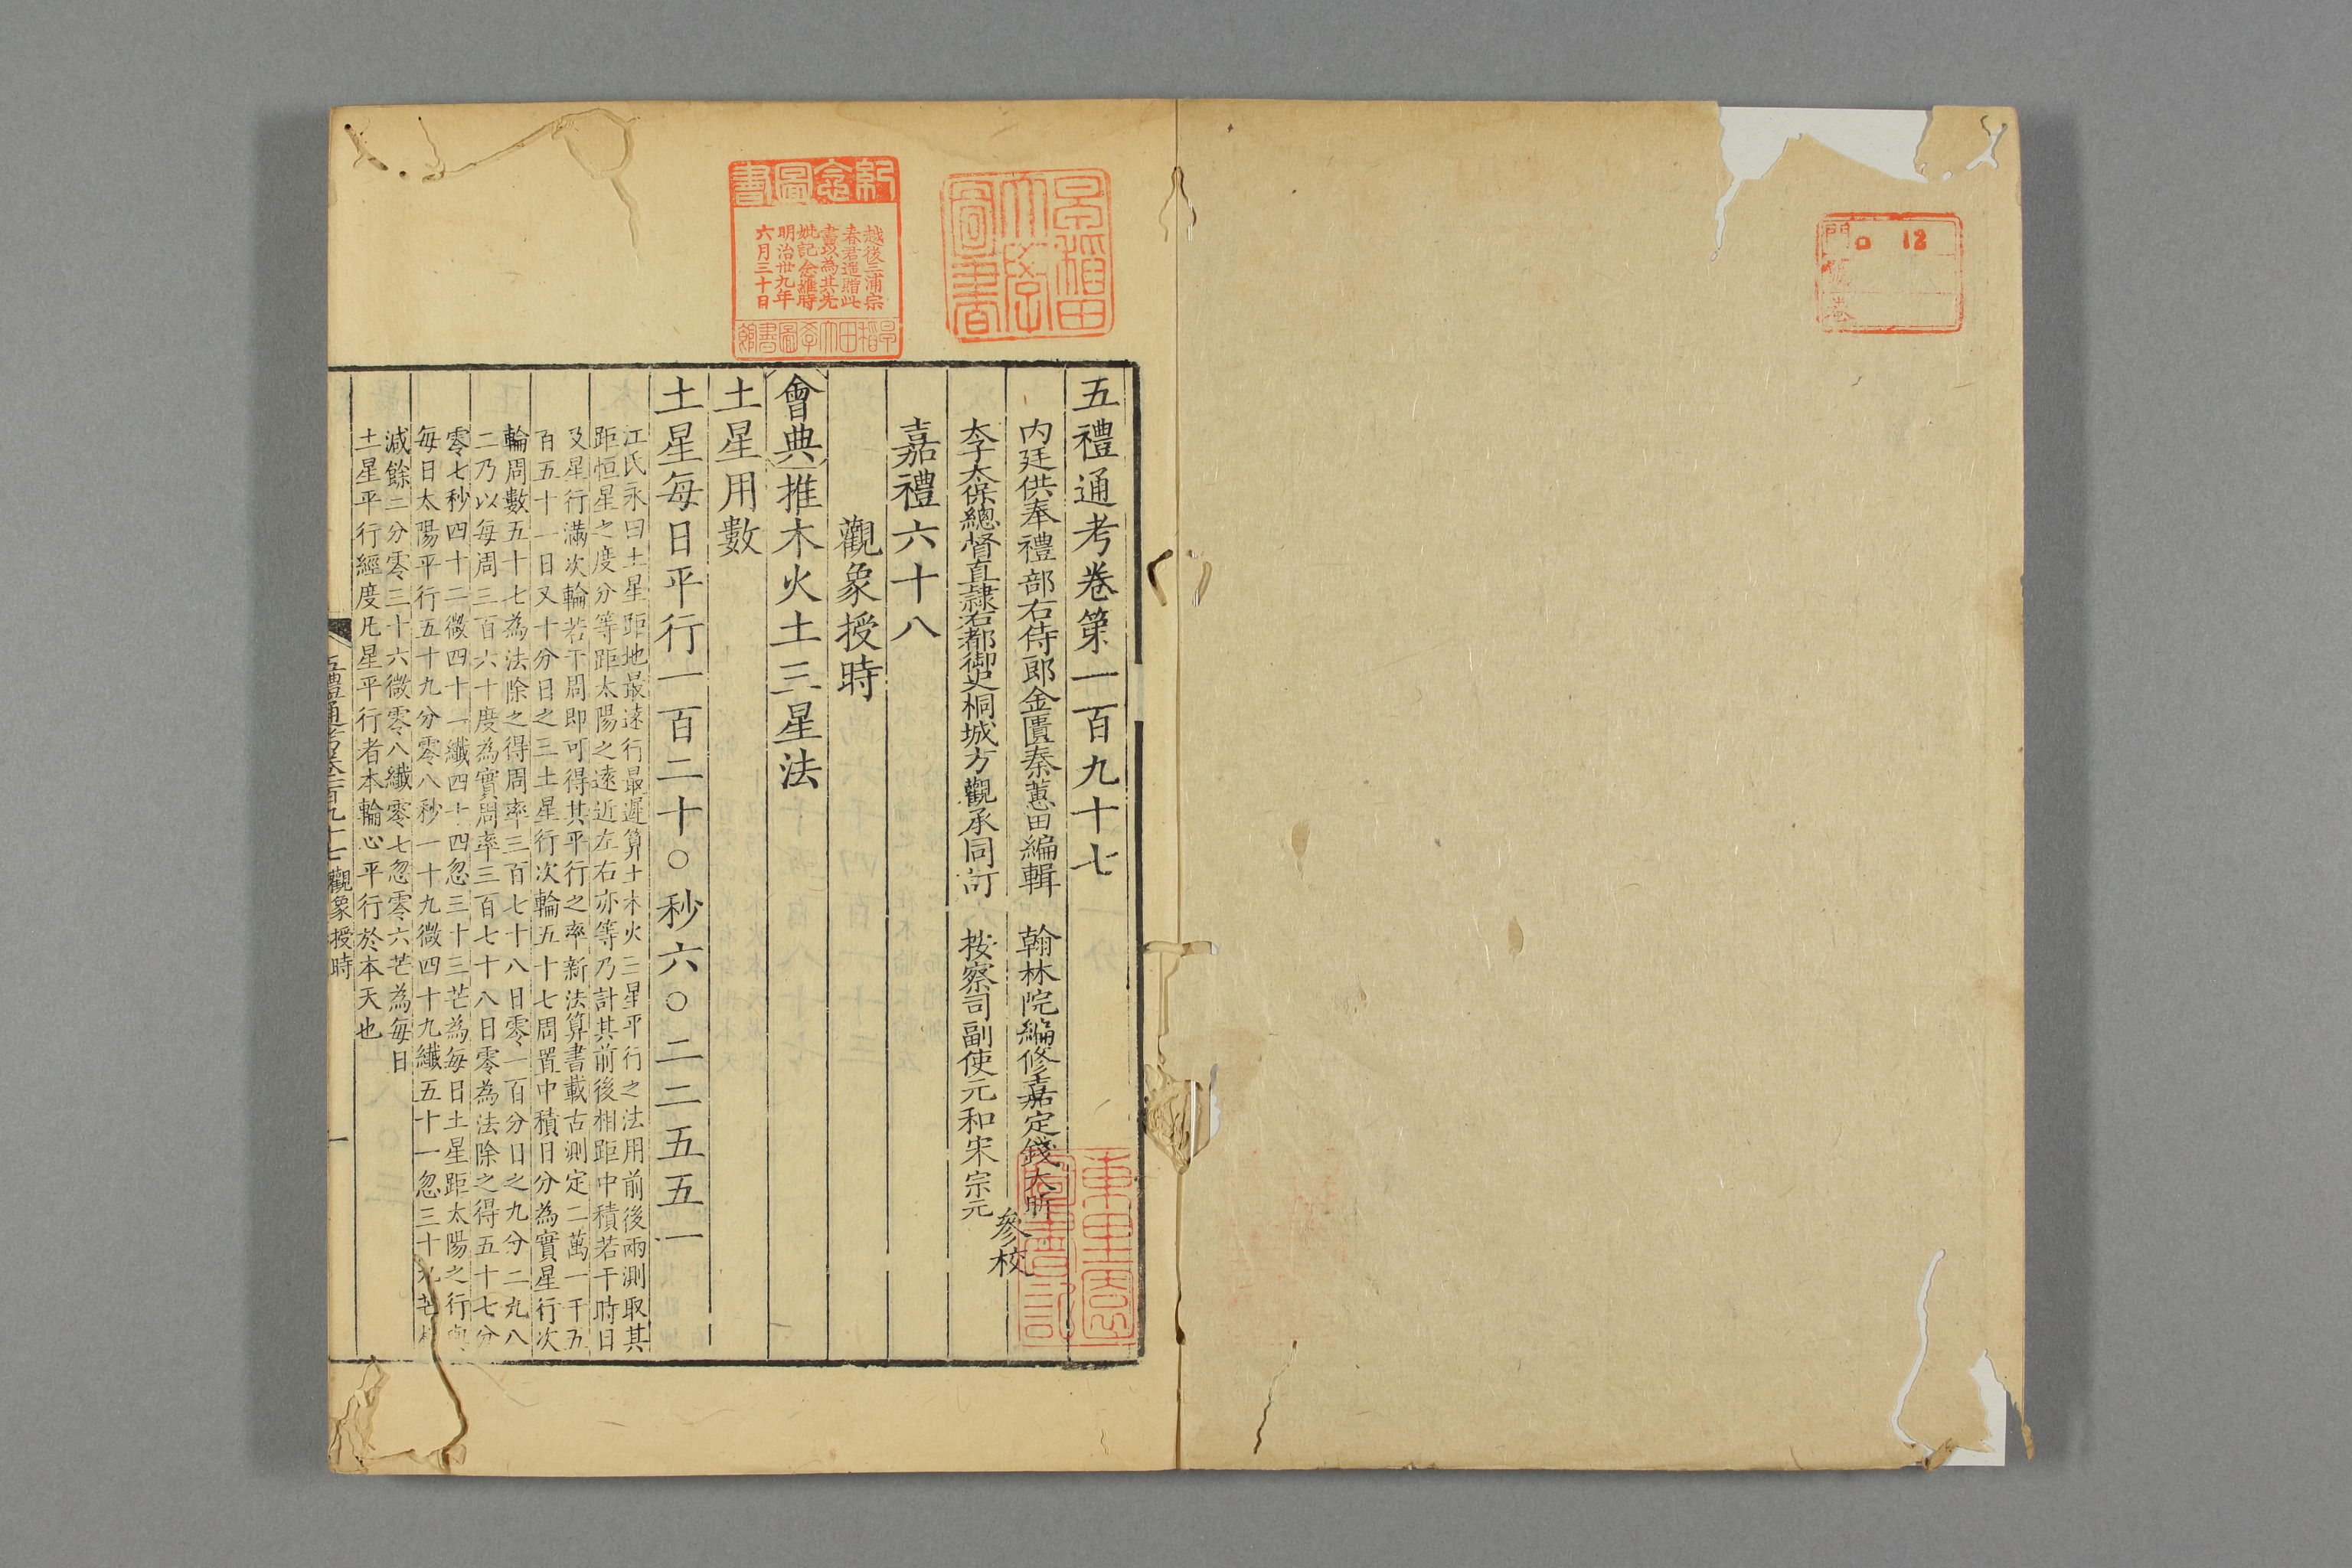 門 ロ 12
號
卷
早稻田
大學
圖書
紀念圖書
越後三浦宗
春君遥贈此
書以為其先
妣記念維時
明治卅九年
六月三十日
早稻田大學圖書館
五禮通考卷第一百九十七
內廷供奉禮部右侍郎金匱秦蕙田編輯 翰林院編修嘉定錢大昕
太子太保總督直隸右都御史桐城方觀承同訂 按察司副使元和宋宗元
參校
嘉禮六十八
觀象授時
會典推木火土三星法
土星用數
土星每日平行一百二十○秒六○二二五五一
江氏永曰土星距地最遠行最遲算土木火三星平行之法用前後兩測取其
距恒星之度分等距太陽之遠近左右亦等乃計其前後相距中積若干時日
及星行滿次輪若干周即可得其平行之率新法算書載古測定二萬一千五
百五十一日又十分日之三土星行次輪五十七周置中積日分為實星行次
輪周數五十七為法除之得周率三百七十八日零一百分日之九分二九八
二乃以每周三百六十度為實周率三百七十八日零為法除之得五十七分
零七秒四十二微四十一纖四十四忽三十三芒為每日土星距太陽之行與
每日太陽平行五十九分零八秒一十九微四十九纖五十一忽三十九芒相
減餘二分零三十六微零八纖零七忽零六芒為每日
土星平行經度凡星平行者本輪心平行於本天也
五禮通考卷一百九十七 觀象授時
一